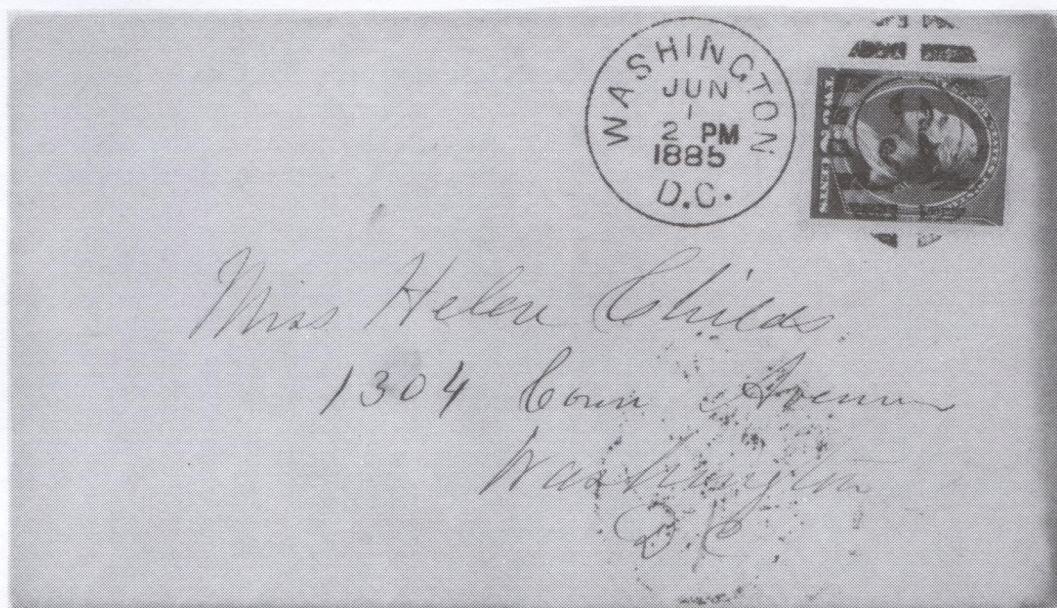 WASHINGTON
JUN
1
2 PM
1885
D.C.
TWO 2 CENTS
Miss Helen Childs.
1304 Conn Avenue
Washington
D.C.